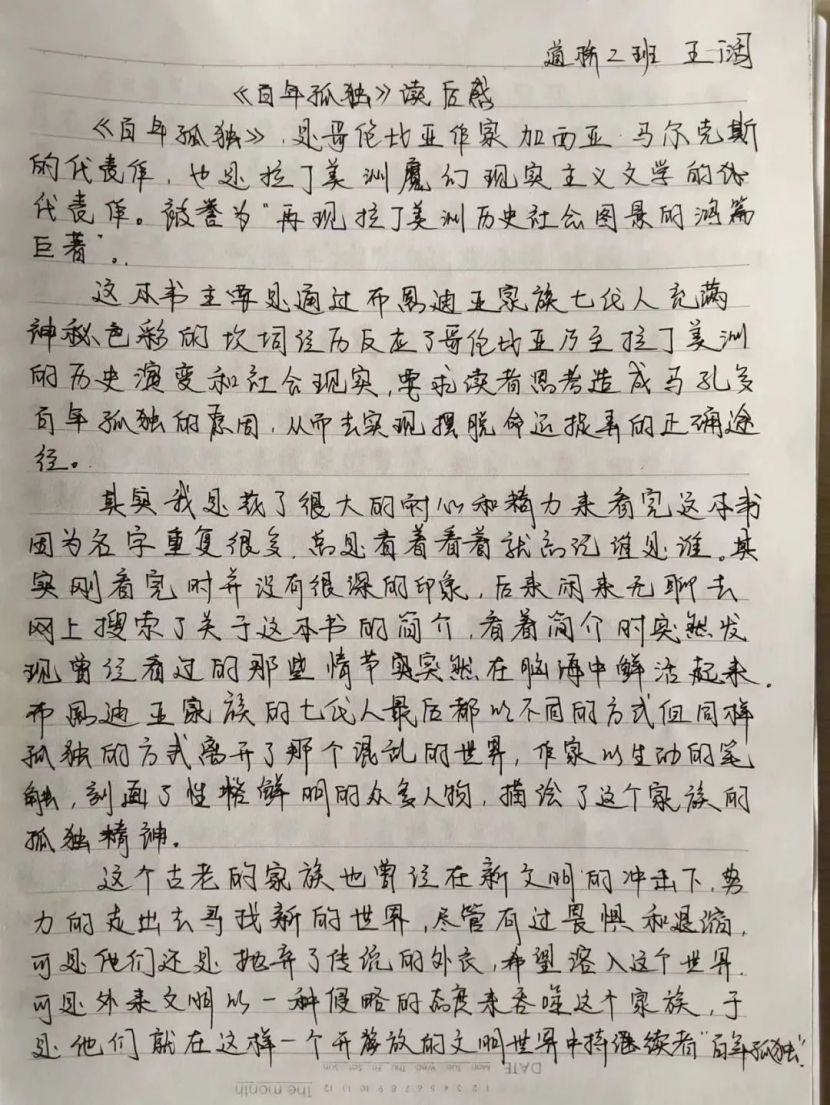 道桥2班 王阔
《百年孤独》读后感
《百年孤独》,是哥伦比亚作家加西亚·马尔克斯
的代表作,也是拉丁美洲魔幻现实主义文学的代
代表作。被誉为“再现拉丁美洲历史社会图景的鸿篇
巨著”。
这本书主要是通过布恩迪亚家族七代人充满
神秘色彩的坎坷经历反应了哥伦比亚乃至拉丁美洲
的历史演变和社会现实,要求读者思考造成马孔多
百年孤独的原因,从而去实现摆脱命运捉弄的正确途
径。
其实我是花了很大的耐心和精力来看完这本书
因为名字重复很多,总是看着看着就忘记谁是谁。其
实刚看完时并没有很深的印象,后来闲来无聊去
网上搜索了关于这本书的简介,看着简介时突然发
现曾经看过的那些情节突然在脑海中鲜活起来.
布恩迪亚家族的七代人最后都以不同的方式但同样
孤独的方式离开了那个混乱的世界,作家以生动的笔
触,刻画了性格鲜明的众多人物,描绘了这个家族的
孤独精神。
这个古老的家族也曾经在新文明的冲击下,努
力的走出去寻找新的世界,尽管有过畏惧和退缩,
可是他们还是抛弃了传统的外衣,希望溶入这个世界.
可是外来文明以一种侵略的态度来吞噬这个家族,于
是他们就在这样一个开放的文明世界中持继续着“百年孤独”.
DATE
Mon Tue Wed Thu Fri Sat Sun
The month 1 2 3 4 5 6 7 8 9 10 11 12